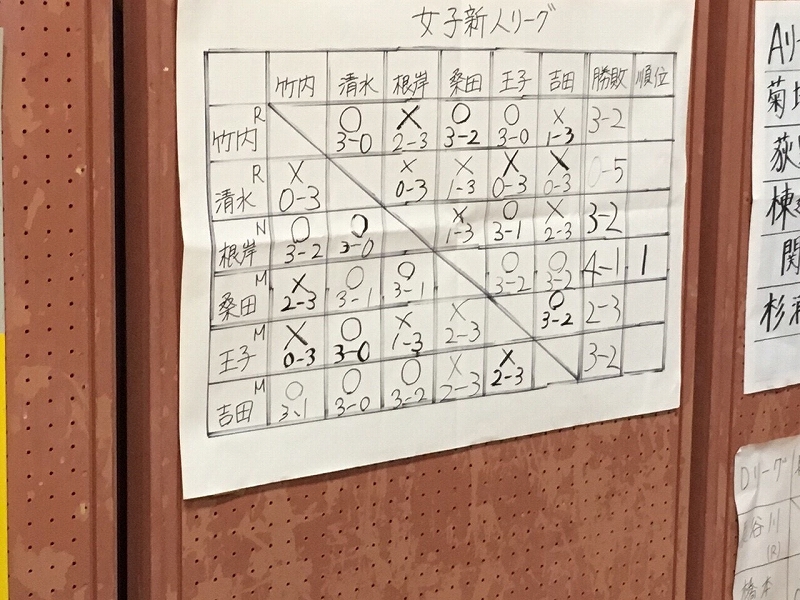 女子新人リーグ
竹内 清水 根岸 桑田 王子 吉田 勝敗 順位
竹内 R ○ 3-0 × 2-3 ○ 3-2 ○ 3-0 × 1-3 3-2
清水 R × 0-3 × 0-3 × 1-3 × 0-3 × 0-3 0-5
根岸 N ○ 3-2 ○ 3-0 × 1-3 ○ 3-1 × 2-3 3-2
桑田 M × 2-3 ○ 3-1 ○ 3-1 ○ 3-2 ○ 3-2 4-1 1
王子 M × 0-3 ○ 3-0 × 1-3 × 2-3 ○ 3-2 2-3
吉田 M ○ 3-1 ○ 3-0 ○ 3-2 × 2-3 × 2-3 3-2
Aリー
菊
荻
棟
関
杉
Dリーグ
谷川
(R)
橋本